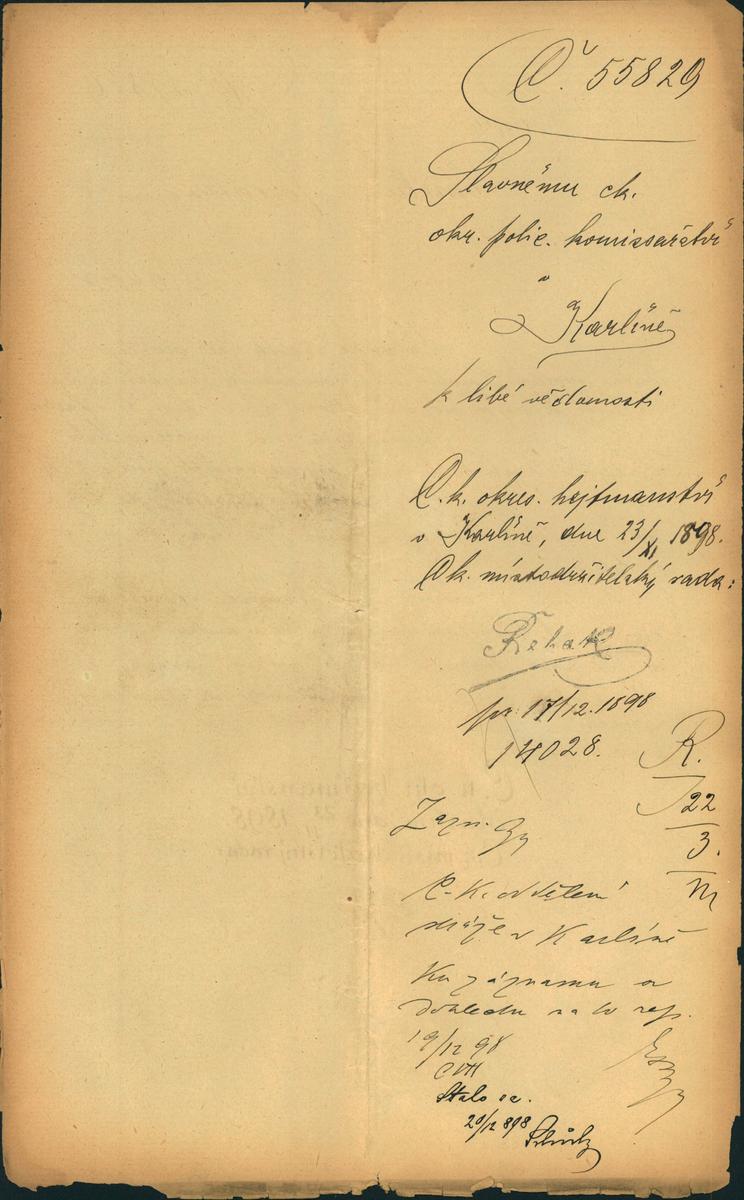 Č. 55829
Slavnému ck.
okr. polic. komisařství
v
Karlíně
k libé vědomosti
C. k. okres. hejtmanství
v Karlíně, dne 23/XI 1898.
C k. místodržitelský rada:
Řehak
pr. 17/12. 1898
14028.
R.
22
3.
Zazn.
C. K. oddělení
stráže v Karlíně
Ku záznamu a
dohledu na to
19/12 98
Stalo se.
20/12 898